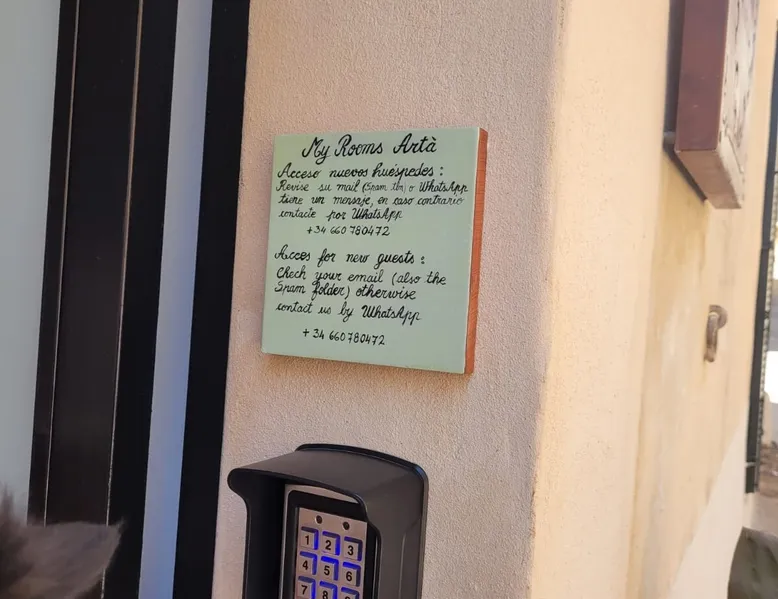 My Rooms Artà
Acceso nuevos huéspedes:
Revise su mail (Spam tbn) o WhatsApp
tiene un mensaje, en caso contrario
contacte por WhatsApp
+34 660 780472
Acces for new guests:
Chech your email (also the
Spam folder) otherwise
contact us by WhatsApp
+34 660780472
1 2 3
4 5 6
7 8 9